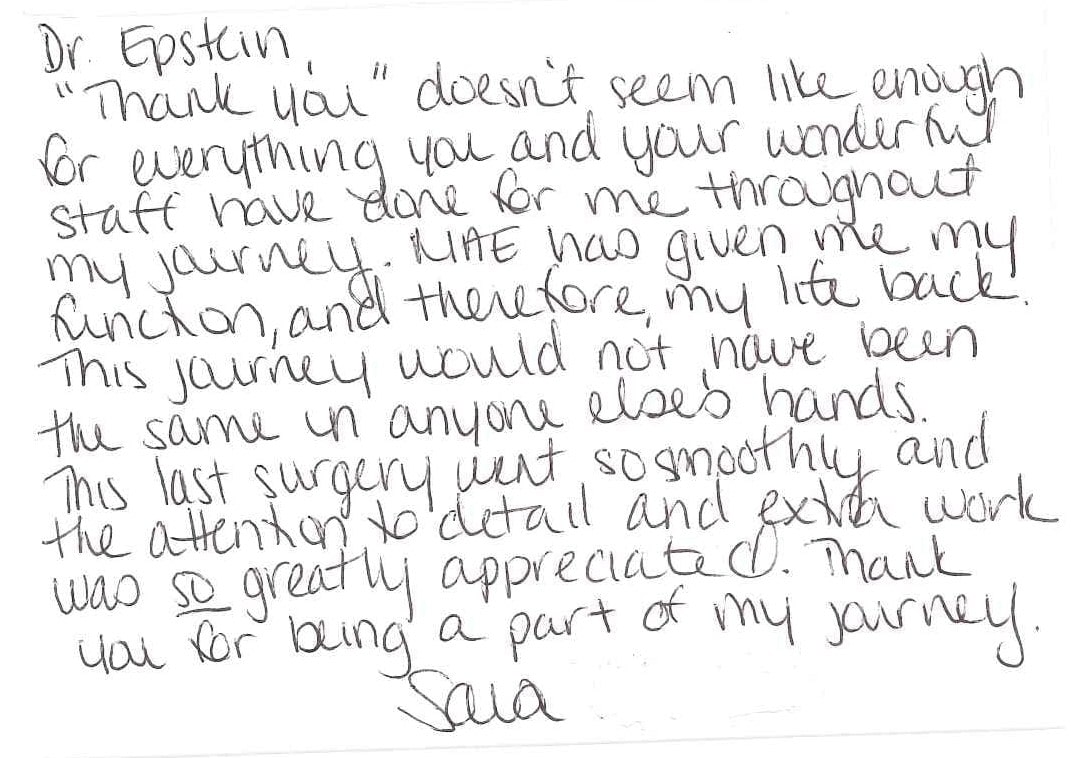 Dr. Epstein,
"Thank you" doesn't seem like enough
for everything you and your wonderful
staff have done for me throughout
my journey. MAE has given me my
function, and therefore, my life back.
This journey would not have been
the same in anyone else's hands.
This last surgery went so smoothly and
the attention to detail and extra work
was so greatly appreciated. Thank
you for being a part of my journey.
Sara